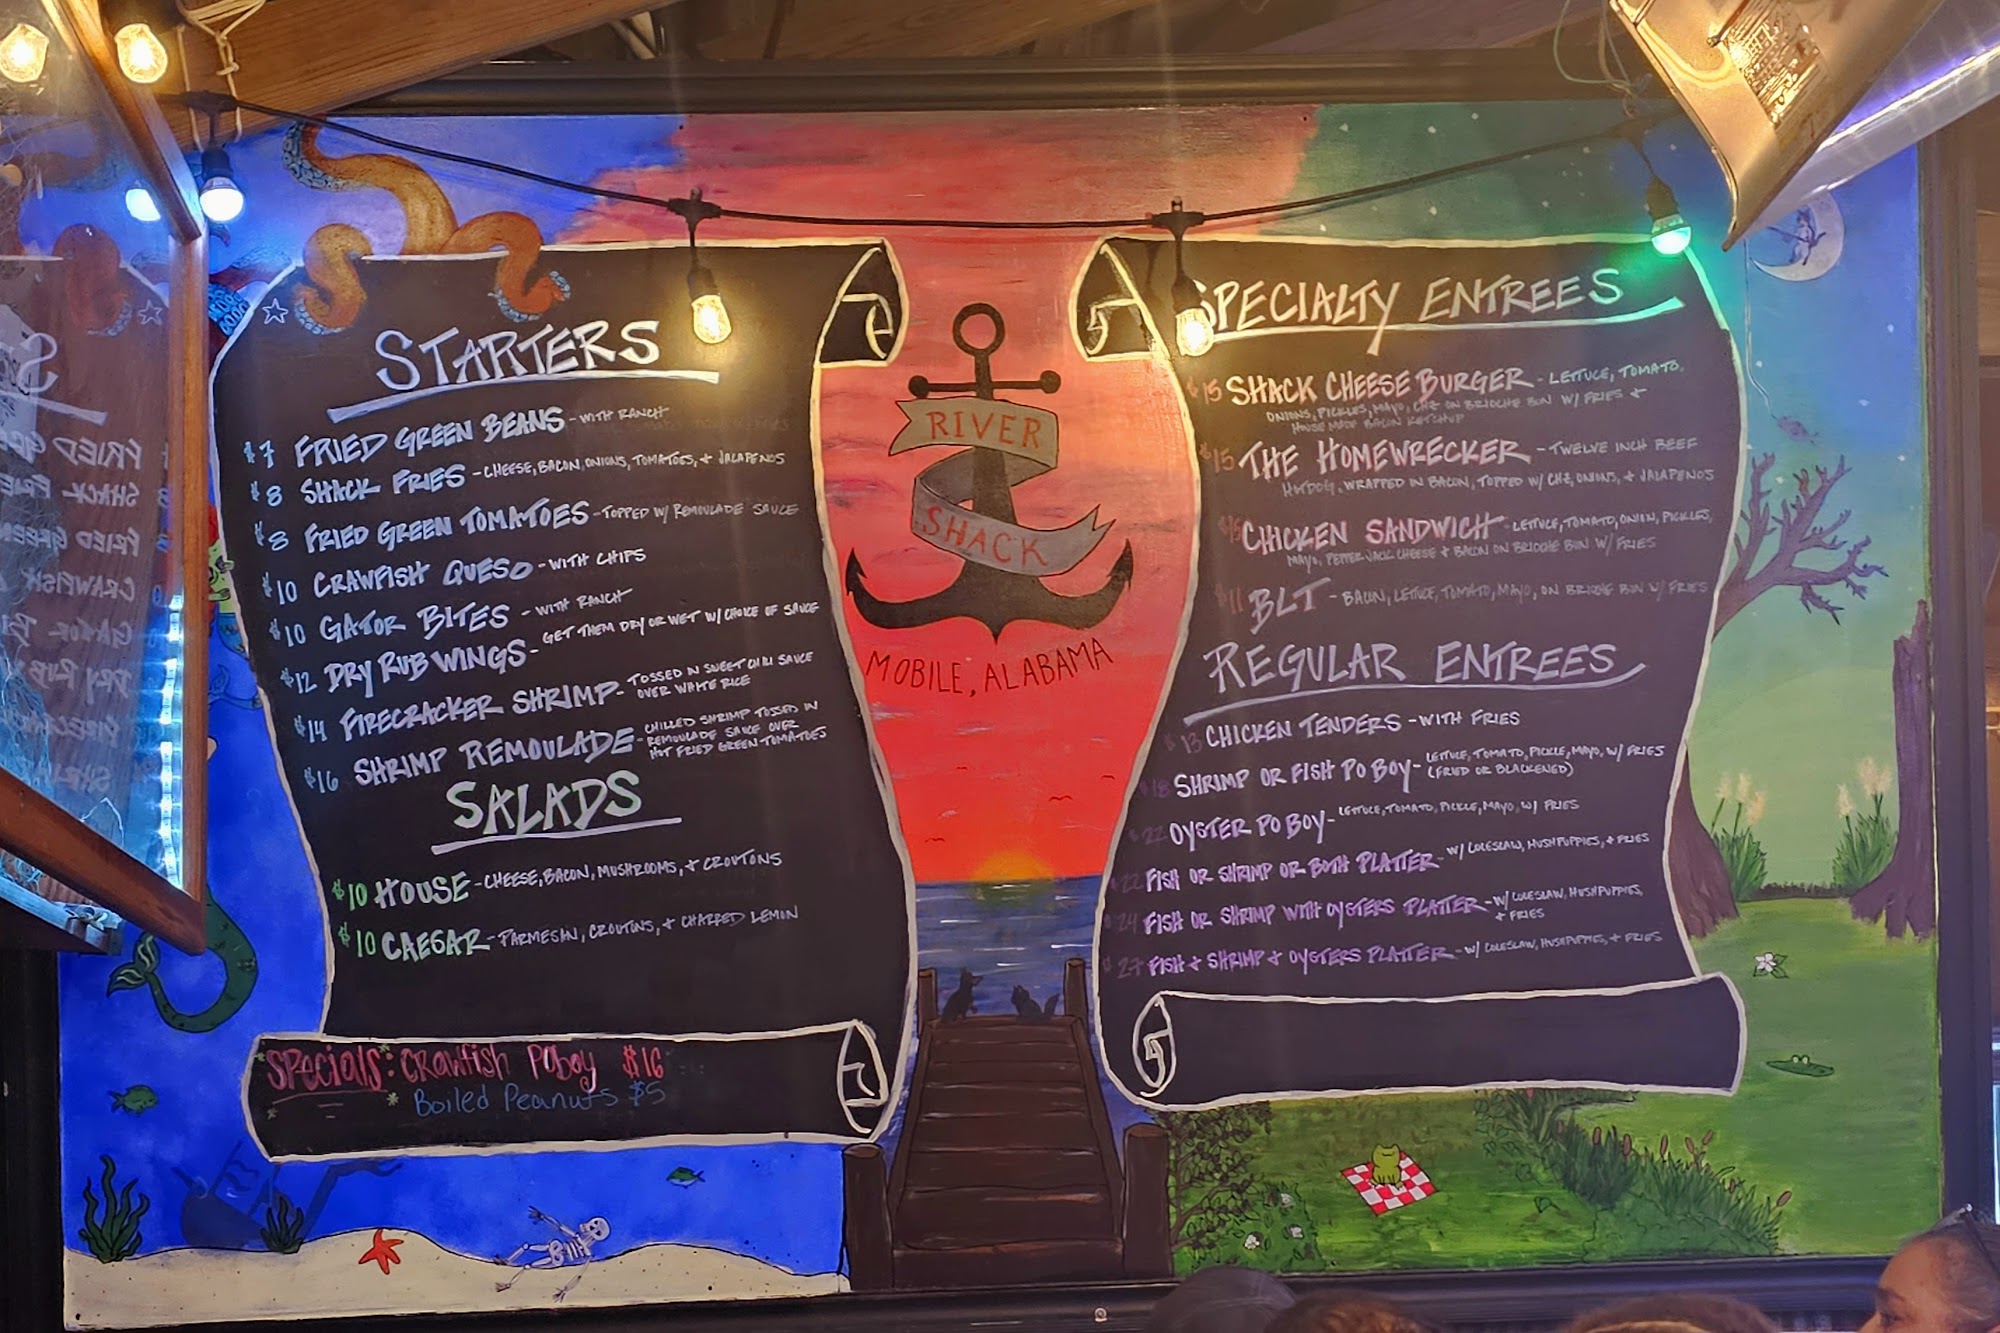 STARTERS
$7 FRIED GREEN BEANS - WITH RANCH
$8 SHACK FRIES - CHEESE, BACON, ONIONS, TOMATOES, + JALAPENOS
$8 FRIED GREEN TOMATOES - TOPPED W/ REMOULADE SAUCE
$10 CRAWFISH QUESO - WITH CHIPS
$10 GATOR BITES - WITH RANCH
$12 DRY RUB WINGS - GET THEM DRY OR WET W/ CHOICE OF SAUCE
$14 FIRECRACKER SHRIMP - TOSSED IN SWEET CHILI SAUCE
OVER WHITE RICE
$16 SHRIMP REMOULADE - CHILLED SHRIMP TOSSED IN
REMOULADE SAUCE OVER
HOT FRIED GREEN TOMATOES
SALADS
$10 HOUSE - CHEESE, BACON, MUSHROOMS, + CROUTONS
$10 CAESAR - PARMESAN, CROUTONS, + CHARRED LEMON
SPECIALS: CRAWFISH POBOY $16
Boiled Peanuts $5
RIVER
SHACK
MOBILE, ALABAMA
SPECIALTY ENTREES
$15 SHACK CHEESE BURGER - LETTUCE, TOMATO,
ONIONS, PICKLES, MAYO, CHZ ON BRIOCHE BUN W/ FRIES +
HOUSE MADE BACON KETCHUP
$15 THE HOMEWRECKER - TWELVE INCH BEEF
HOTDOG, WRAPPED IN BACON, TOPPED W/ CHZ, ONIONS, + JALAPENOS
$15 CHICKEN SANDWICH - LETTUCE, TOMATO, ONION, PICKLES,
MAYO, PEPPER JACK CHEESE + BACON ON BRIOCHE BUN W/ FRIES
$11 BLT - BACON, LETTUCE, TOMATO, MAYO, ON BRIOCHE BUN W/ FRIES
REGULAR ENTREES
$13 CHICKEN TENDERS - WITH FRIES
$18 SHRIMP OR FISH PO BOY - LETTUCE, TOMATO, PICKLE, MAYO, W/ FRIES
(FRIED OR BLACKENED)
$22 OYSTER PO BOY - LETTUCE, TOMATO, PICKLE, MAYO, W/ FRIES
$22 FISH OR SHRIMP OR BOTH PLATTER - W/ COLESLAW, HUSHPUPPIES, + FRIES
$24 FISH OR SHRIMP WITH OYSTERS PLATTER - W/ COLESLAW, HUSHPUPPIES,
+ FRIES
$27 FISH + SHRIMP + OYSTERS PLATTER - W/ COLESLAW, HUSHPUPPIES, + FRIES